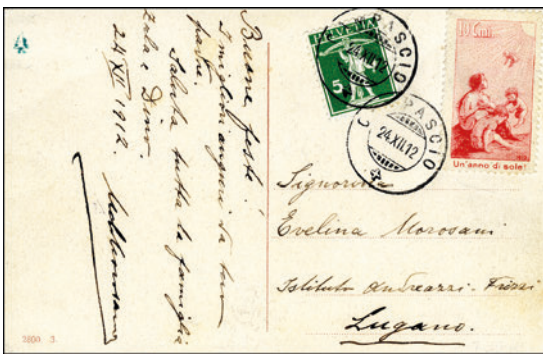 Buone feste!
I migliori auguri da tuo
padre.
Saluta tutta la famiglia
Zula e Dino.
24 XII 1912.
HELVETIA
5
PASCIO
24.XII.12
PASCIO
24.XII.12
10 Cmi
Un'anno di sole!
Signorina
Evelina Morosani
Istituto Andreazzi-
Lugano.
3800 3.
4